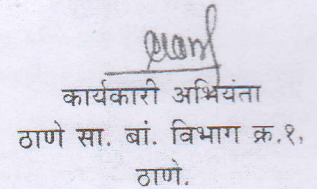 कार्यकारी अभियंता
ठाणे सा. बां. विभाग क्र.१,
ठाणे.